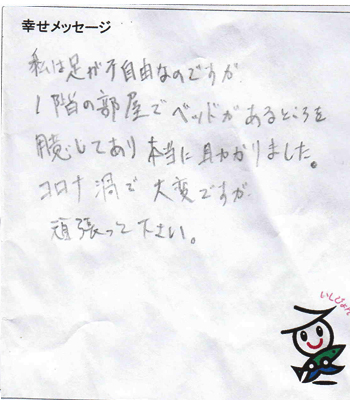 幸せメッセージ
私は足が不自由なのですが
1階の部屋でベッドがあるところを
用意してあり本当に助かりました。
コロナ渦で大変ですが
頑張って下さい。